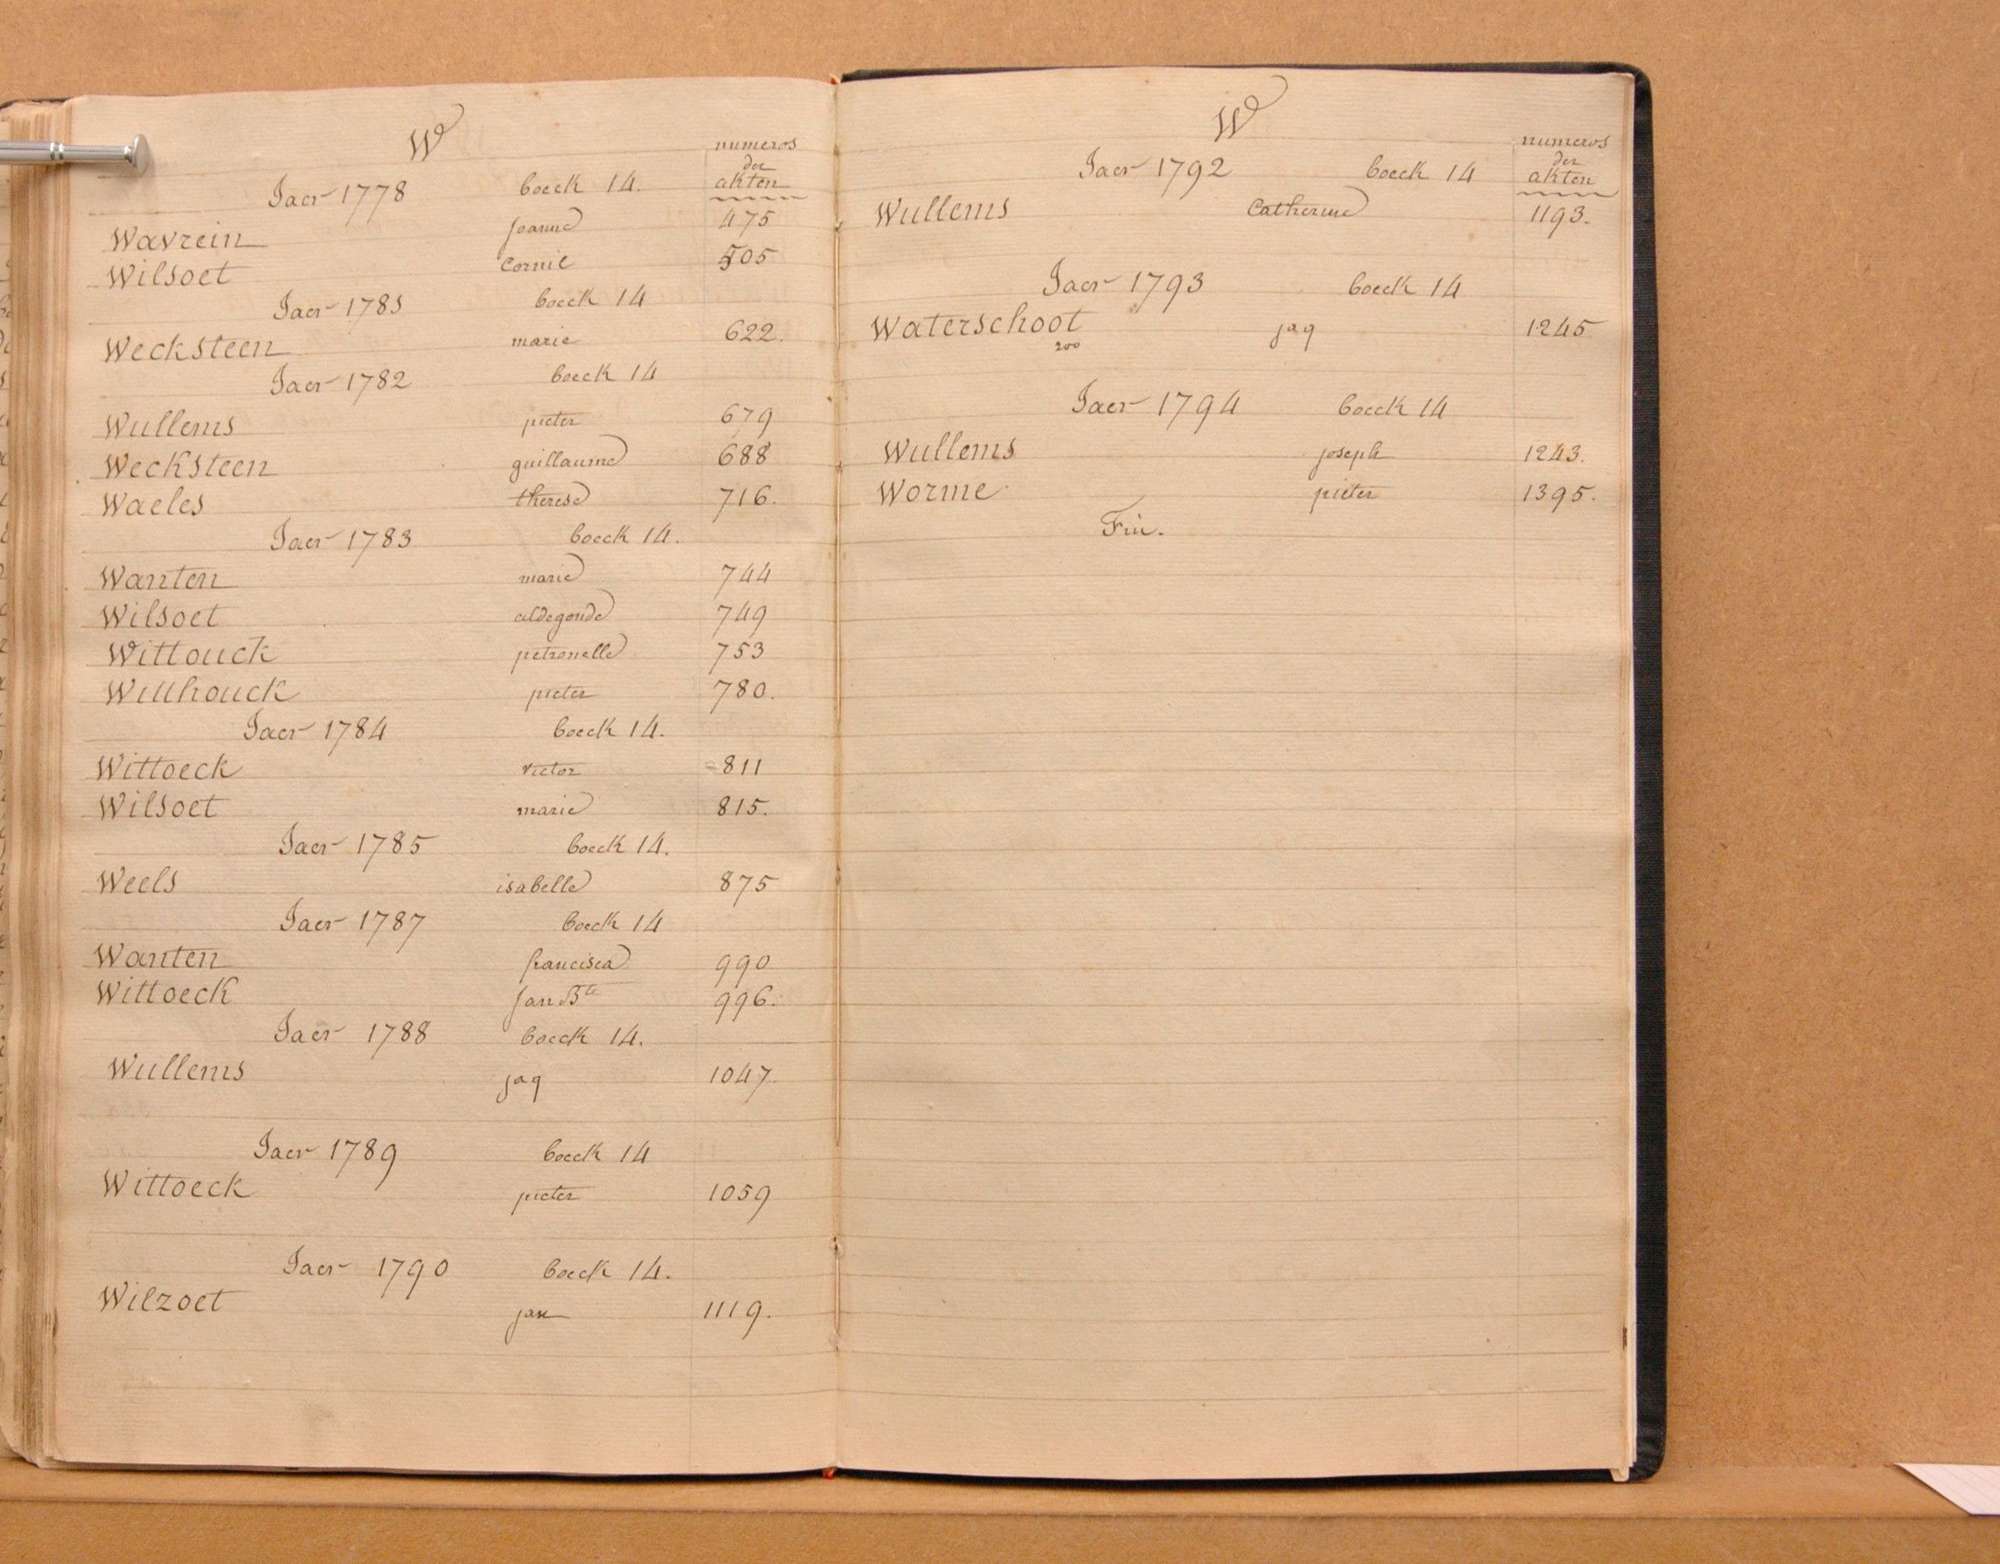 W
numeros
der
akten
Jaer 1778 boeck 14.
Wavrein Joanne 475
Wilsoet Cornil 505
Jaer 1781 boeck 14
Wecksteen marie 622.
Jaer 1782 boeck 14
Wullems pieter 679
Wecksteen guillaume 688
Waeles therese 716.
Jaer 1783 boeck 14.
Wanten marie 744
Wilsoet aldegonde 749
Wittouck petronelle 753
Witthouck pieter 780.
Jaer 1784 boeck 14.
Wittoeck victor 811
Wilsoet marie 815.
Jaer 1785 boeck 14.
Weels isabelle 875
Jaer 1787 boeck 14
Wanten francisca 990
Wittoeck Jan Bte 996.
Jaer 1788 boeck 14.
Wullems jaq 1047.
Jaer 1789 boeck 14
Wittoeck pieter 1059
Jaer 1790 boeck 14.
Wilzoet jan 1119.
W
numeros
der
akten
Jaer 1792 boeck 14
Wullems Catherine 1193.
Jaer 1793 boeck 14
Waterschoot jaq 1245
Jaer 1794 boeck 14
Wullems joseph 1243.
Worme pieter 1395.
Fin.